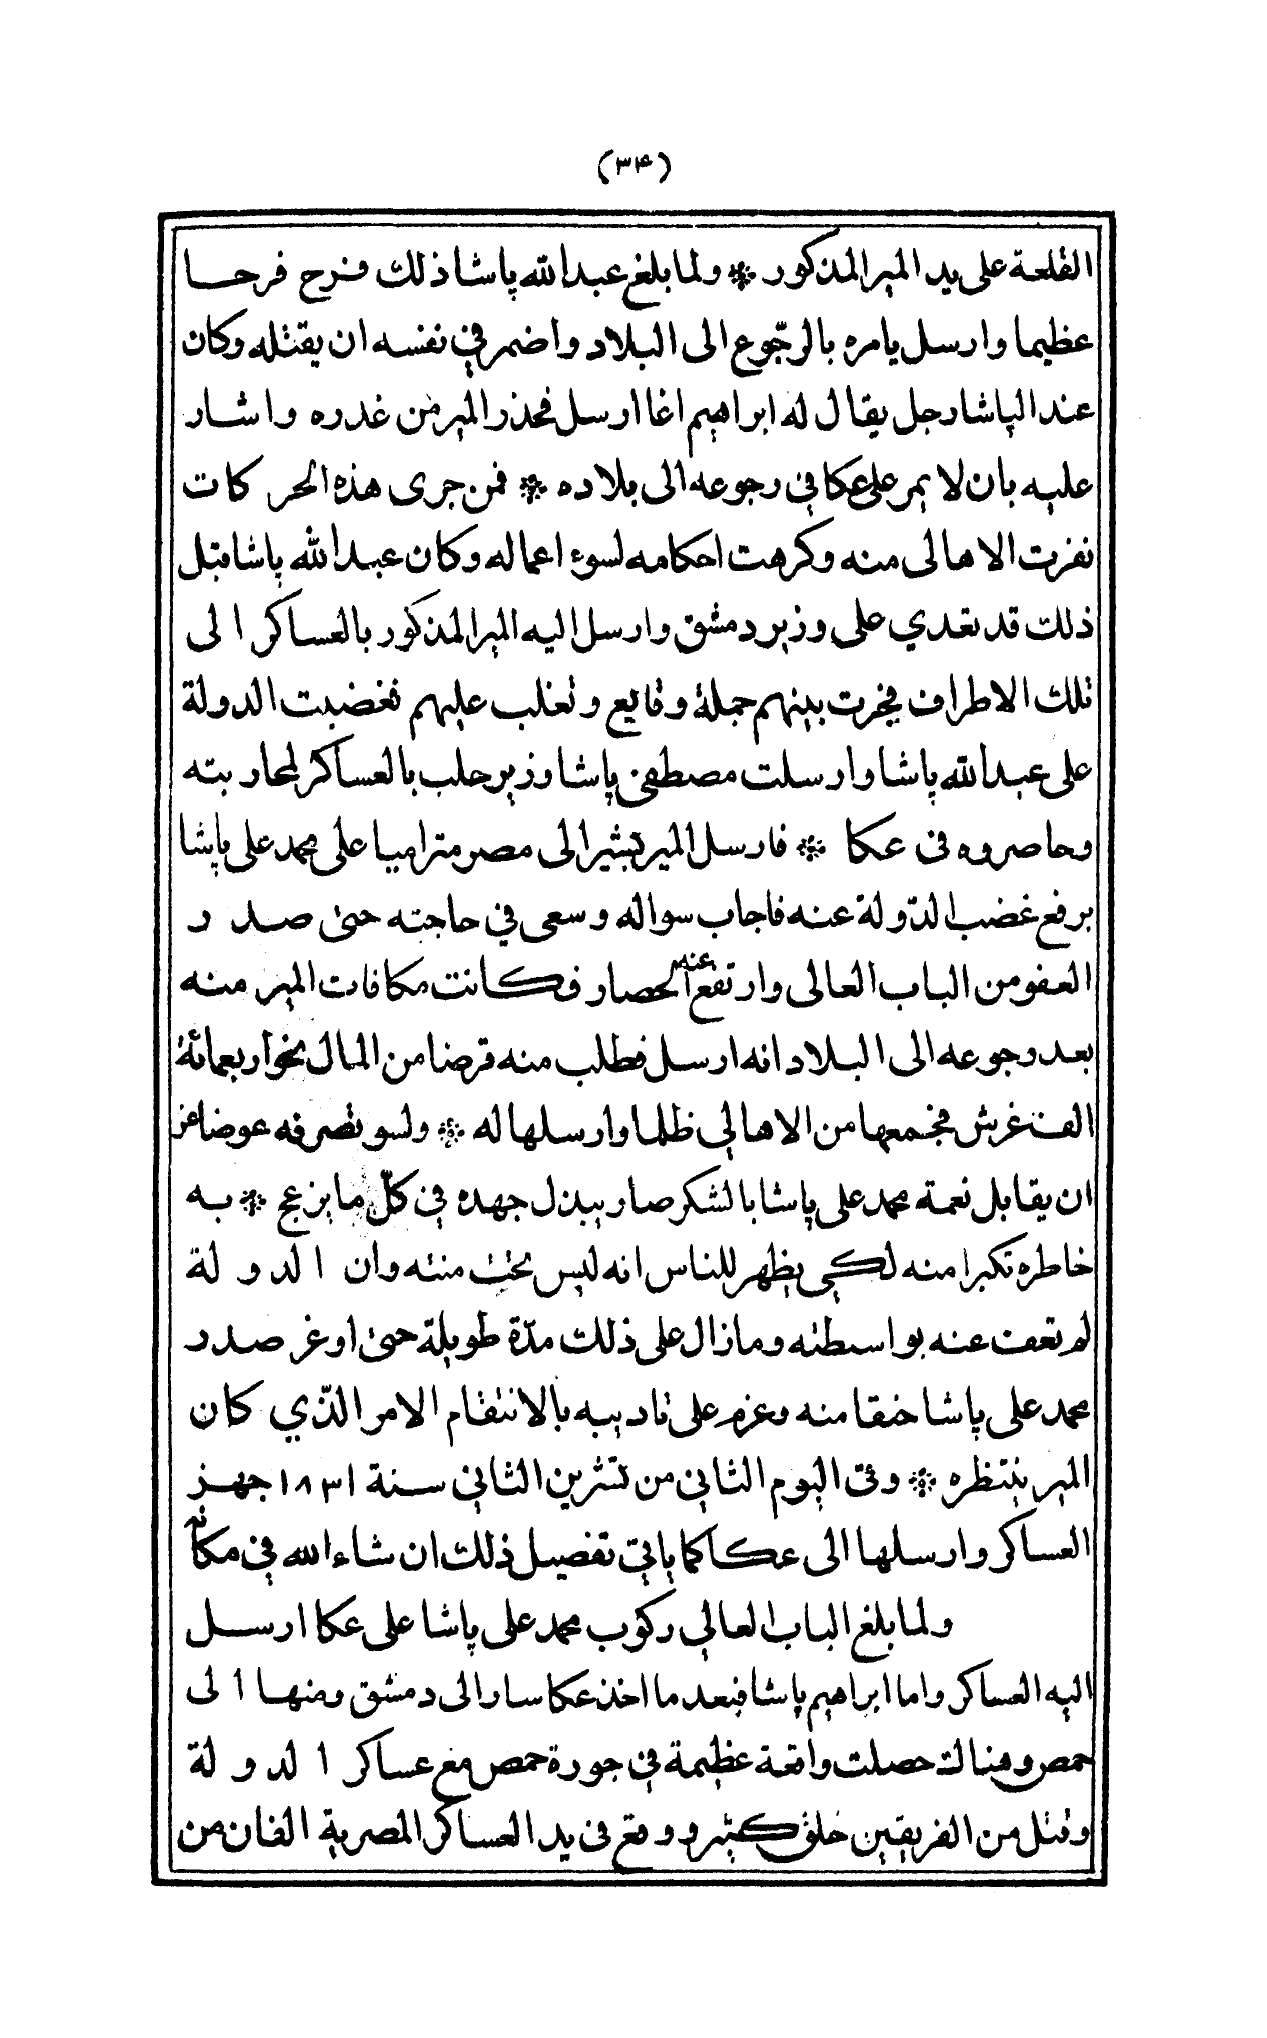 (٣٤)
القلعة على يد المير المذكور * ولما بلغ عبد الله پاشا ذلك فرح فرحا
عظيما وارسل يامره بالرجّوع الى البلاد واضمر في نفسه ان يقتله وكان
عند الپاشا رجل يقال له ابراهيم اغا ارسل فحذر المير من غدره واشار
عليه بان لا يمر على عكا في رجوعه الى بلاده * فمن جرى هذه الحركات
نفرت الاهالى منه وكرهت احكامه لسوء اعماله وكان عبد الله پاشا قبل
ذلك قد تعدي على وزير دمشق وارسل اليه المير المذكور بالعساكر الى
تلك الاطراف فجرت بينهم جملة وقايع وتغلب عليهم فغضبت الدولة
على عبد الله پاشا وارسلت مصطفى پاشا وزير حلب بالعساكر لمحاربته
وحاصروه في عكا * فارسل المير بشير الى مصر متراميا على محمد على پاشا
برفع غضب الدّولة عنه فاجاب سواله وسعى في حاجته حتى صدر
العفو من الباب العالى وارتفع عنه الحصار فكانت مكافات المير منه
بعد رجوعه الى البلاد انه ارسل فطلب منه قرضا من المال نحو اربعمائة
الف غرش فجمعها من الاهالي ظلما وارسلها له * ولسو تصرفه عوضا عن
ان يقابل نعمة محمد على پاشا بالشكر صار يبذل جهده في كلّ ما يزعج * به
خاطره تكبرا منه لكي يظهر للناس انه ليس تحت منته وان الدولة
لم تعف عنه بواسطته وما زال على ذلك مدّة طويلة حتى اوغر صدر
محمد على پاشا حنقا منه وعزم على تاديبه بالانتقام الامر الذّي كان
المير ينتظره * وفي اليوم الثاني من تشرين الثاني سنة ١٨٣١ جهز
العساكر وارسلها الى عكا كما ياتي تفصيل ذلك ان شاء الله في مكانه
ولما بلغ الباب العالي ركوب محمد على پاشا على عكا ارسل
اليه العساكر واما ابراهيم پاشا فبعد ما اخذ عكا سار الى دمشق ومنها الى
حمص وهناك حصلت واقعة عظيمة في جورة حمص مع عساكر الدولة
وقتل من الفريقين خلق كثير ووقع في يد العساكر المصرية الفان من